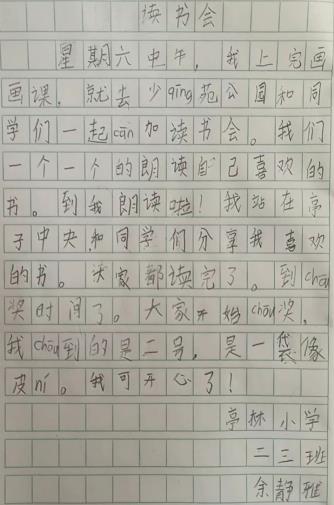 读书会
星期六中午，我上完画
画课，就去少qīng苑公园和同
学们一起cān加读书会。我们
一个一个的朗读自己喜欢的
书。到我朗读啦！我站在亭
子中央和同学们分享我喜欢
的书。大家都读完了。到chōu
奖时间了。大家开始chōu奖，
我chōu到的是二号，是一袋像
皮ní。我可开心了！
亭林小学
二三班
余静雅